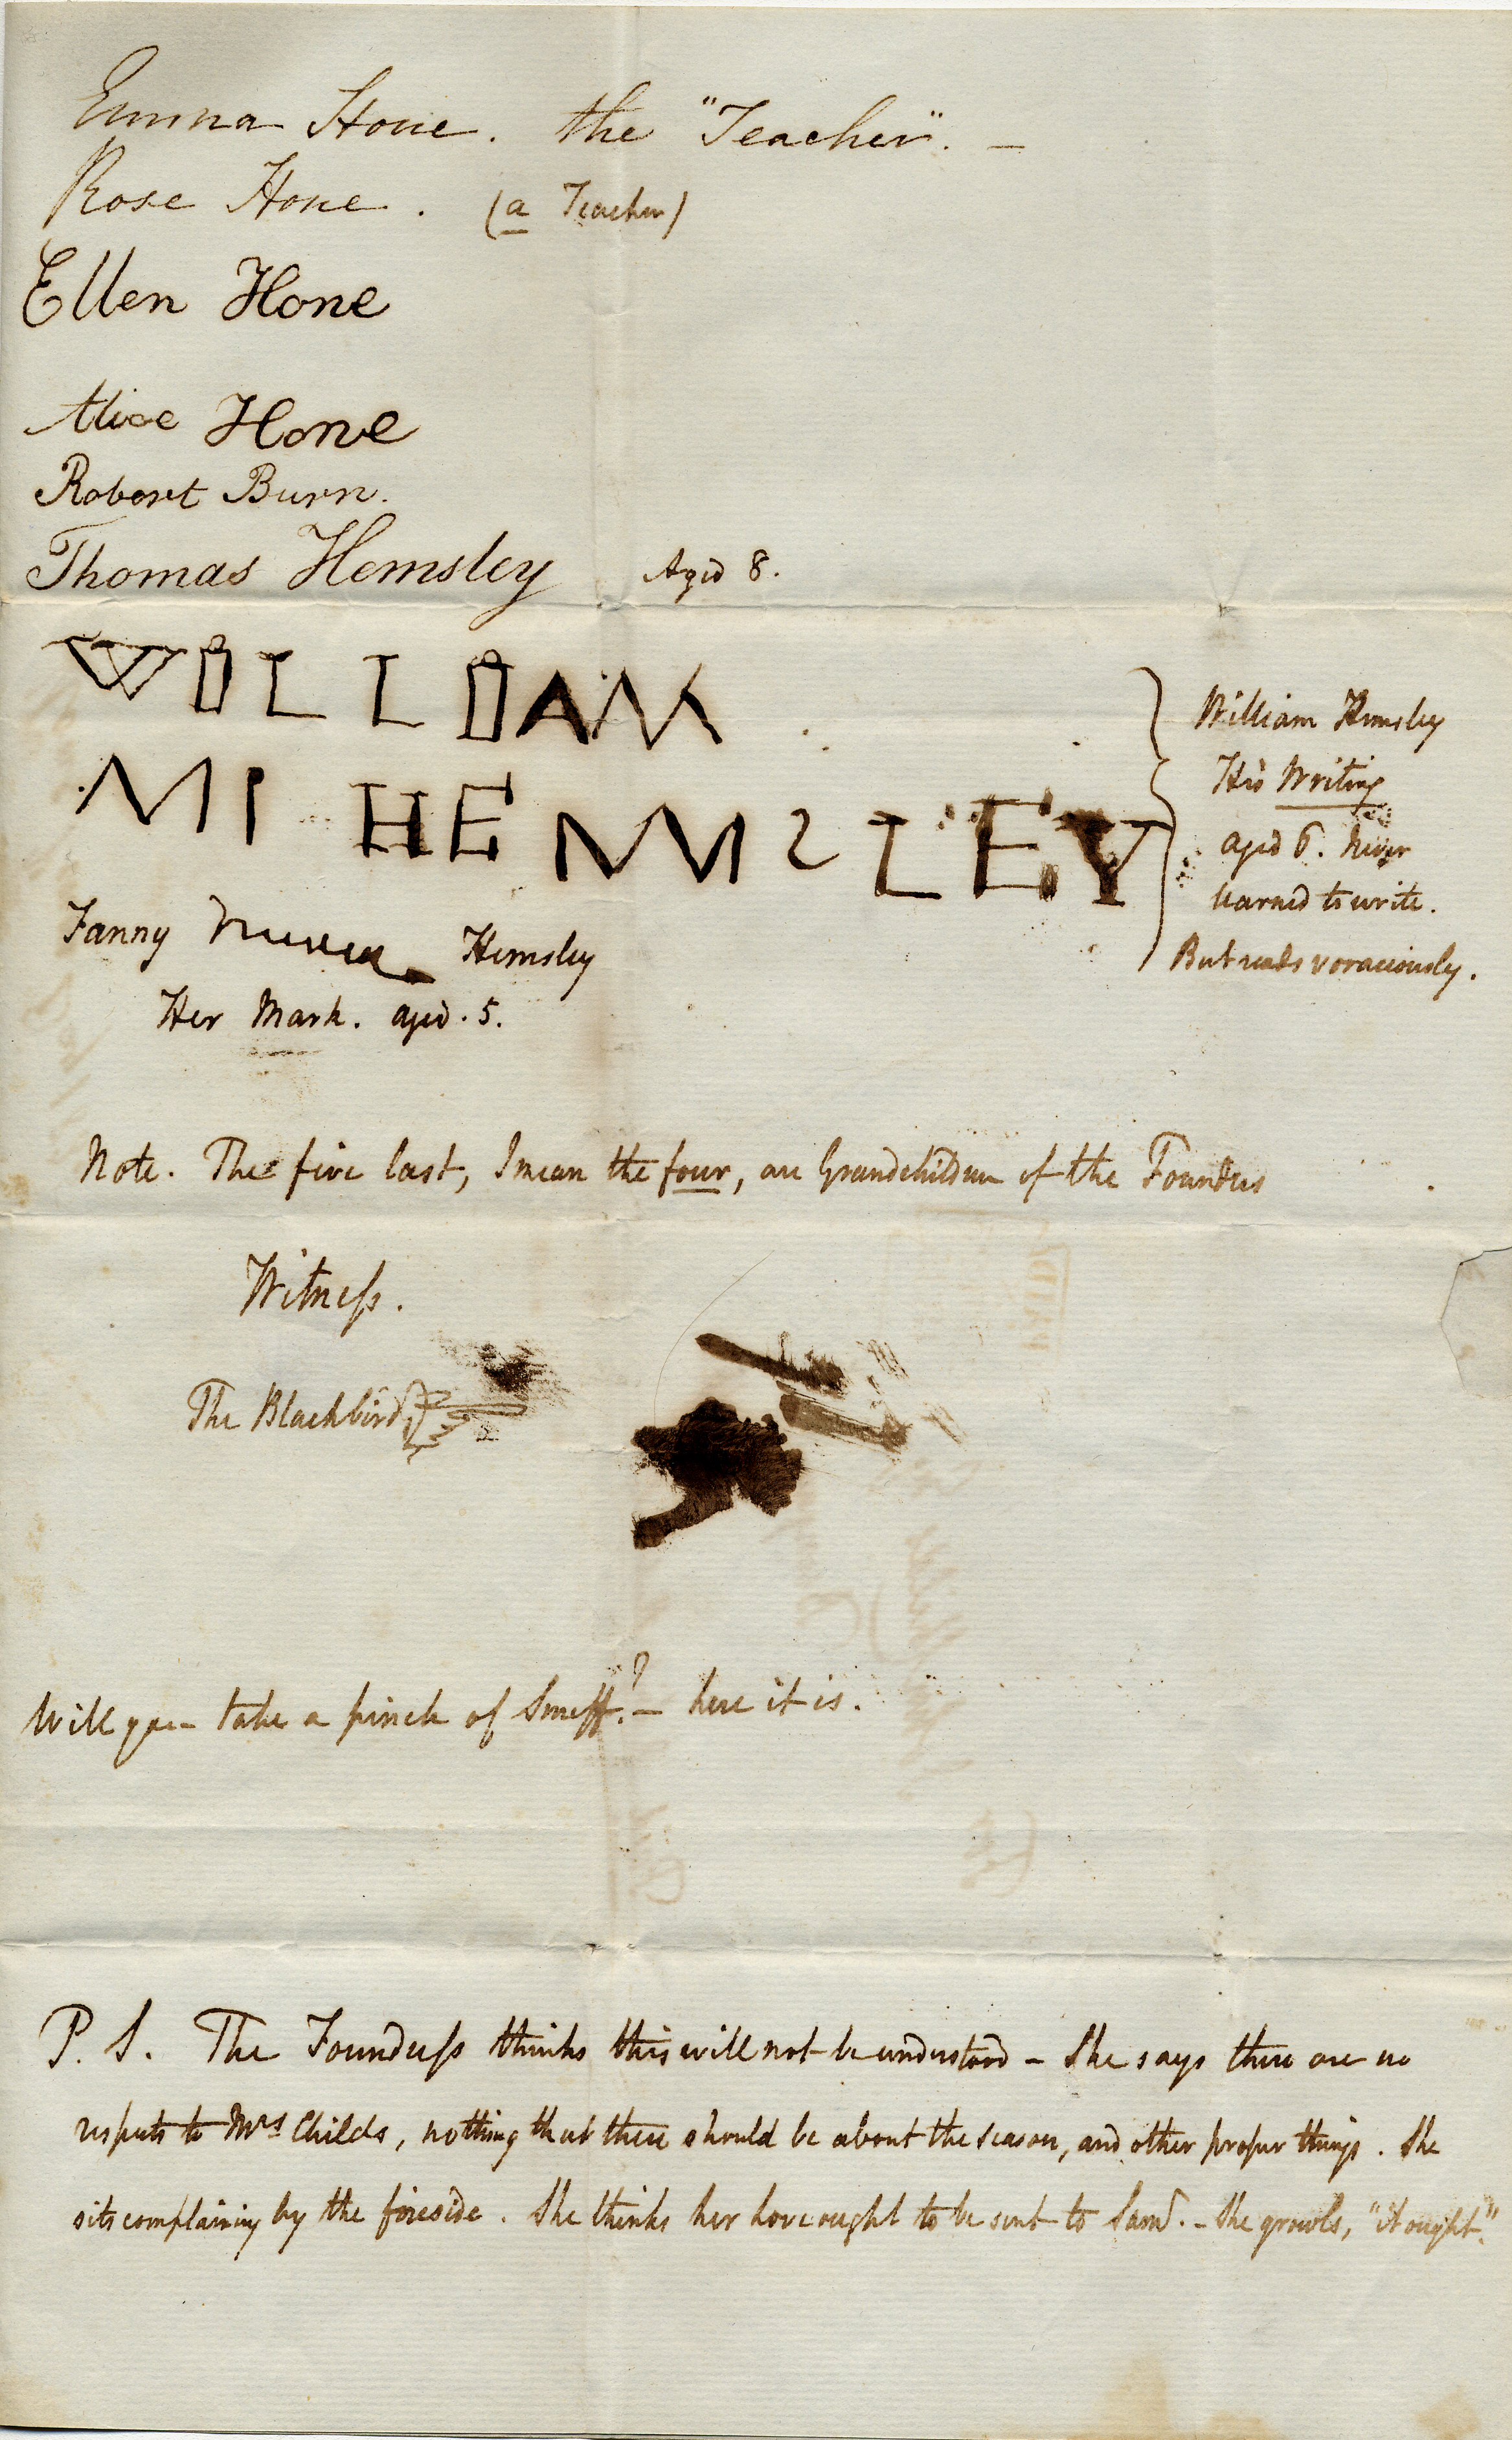 Emma Hone. the "Teacher". —
Rose Hone. (a Teacher)
Ellen Hone
Alice Hone
Robert Burn.
Thomas Hemsley Aged 8.
WILLIAM
MI HEMSLEY
William Hemsley
His Writing
aged 6. Never
learned to write.
But reads voraciously.
Fanny Hemsley
Her Mark. aged. 5.
Note. The five last, I mean the four, are Grandchildren of the Foundess
Witness.
The Blackbird
Will you take a pinch of Snuff?— here it is.
P. S. The Foundress thinks this will not be understood – She says there are no
respects to Mrs Childs, nothing that there should be about the season, and other proper things. She
sits complaining by the fireside. She thinks her love ought to be sent to Saml. – She growls, "it ought."